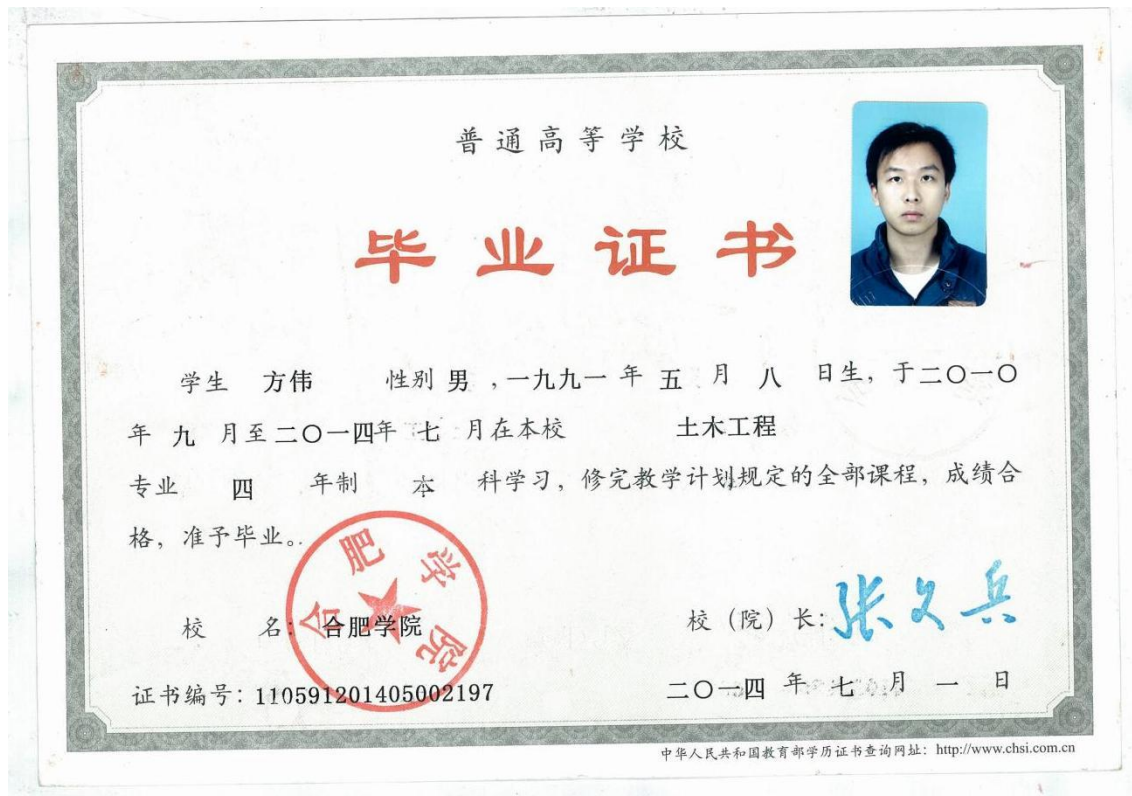 普通高等学校
毕业证书
学生 方伟 性别 男 ，一九九一 年 五 月 八 日生，于二〇一〇
年 九 月至二〇一四年 七 月在本校 土木工程
专业 四 年制 本 科学习，修完教学计划规定的全部课程，成绩合
格，准予毕业。
合肥学院
校 名：合肥学院
校（院）长：张文兵
证书编号：110591201405002197
二〇一四 年 七 月 一 日
中华人民共和国教育部学历证书查询网址：http://www.chsi.com.cn